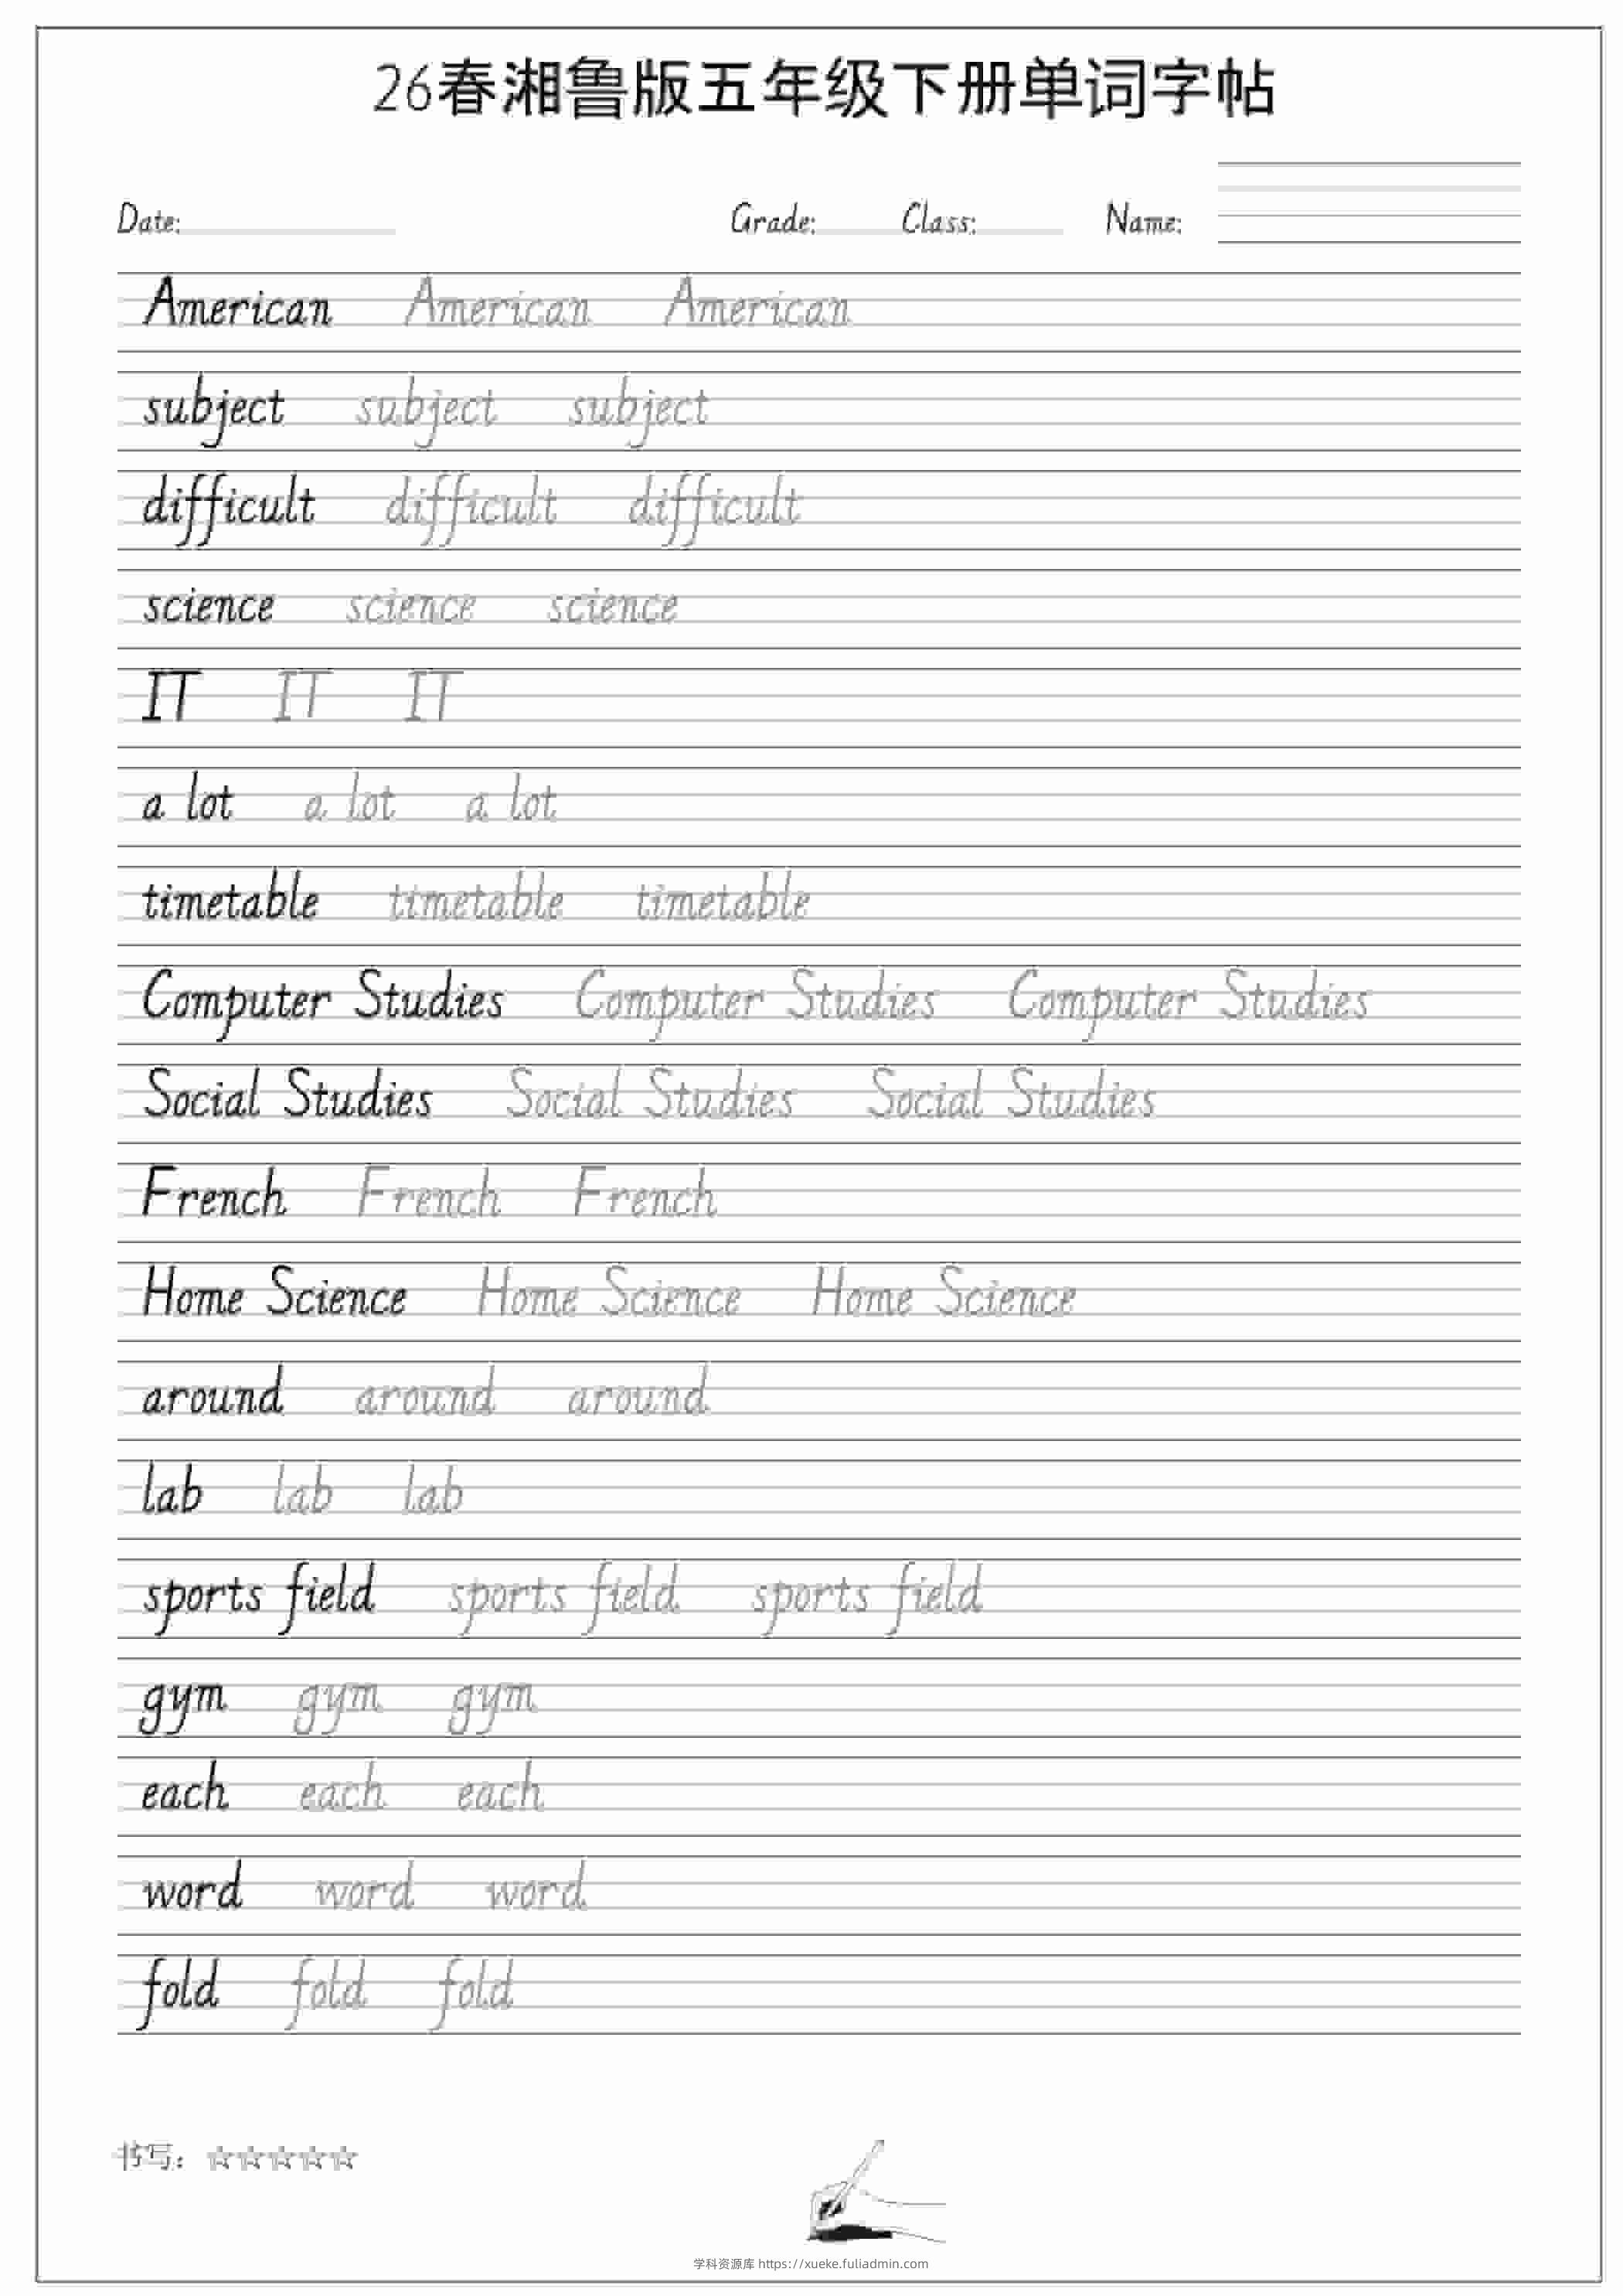 26春湘鲁版五年级下册单词字帖
Date: Grade: Class: Name:
American American American
subject subject subject
difficult difficult difficult
science science science
IT IT IT
a lot a lot a lot
timetable timetable timetable
Computer Studies Computer Studies Computer Studies
Social Studies Social Studies Social Studies
French French French
Home Science Home Science Home Science
around around around
lab lab lab
sports field sports field sports field
gym gym gym
each each each
word word word
fold fold fold
书写：☆☆☆☆☆
学科资源库 https://xueke.fuliadmin.com